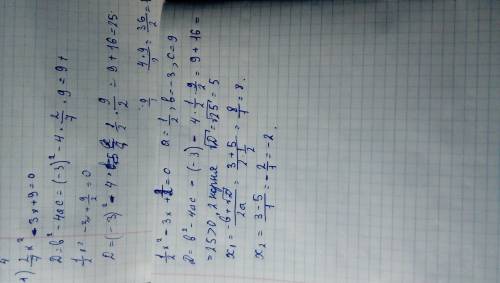 4
1) 2/7 x² - 3x + 9 = 0
D = b² - 4ac = (-3)² - 4 · 2/7 · 9 = 9 +
1/2 x² - 3x + 9/2 = 0
D = (-3)² - 4 · 1/2 · 9/2 = 9 + 16 = 25.
4·9/2 = 36/2 =
1/2 x² - 3x + = 0 a = 1/2, b = -3, c = 9
D = b² - 4ac = (-3)² - 4 · 1/2 · 9/2 = 9 + 16 =
= 25 > 0, 2 корня √D = √25 = 5
x₁ = -b + √D / 2a = 3 + 5 / 2 · 1/2 = 8/1 = 8.
x₂ = 3 - 5 / 1 = -2/1 = -2.